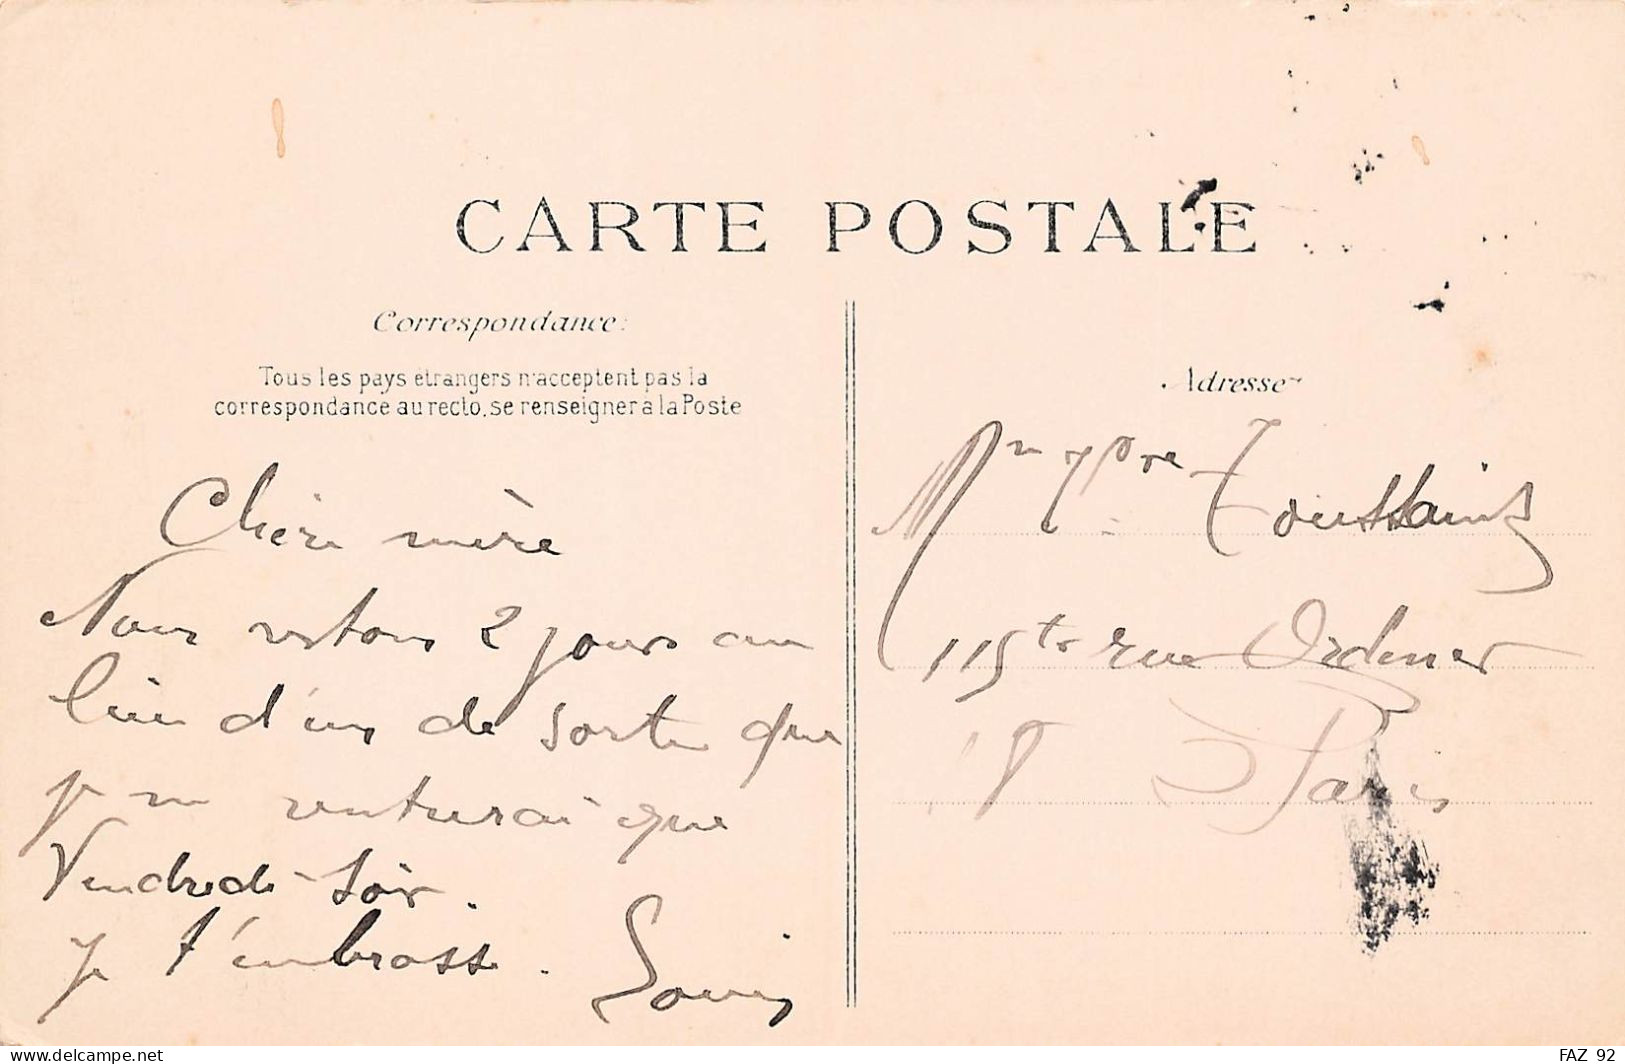 CARTE POSTALE
Correspondance:
Tous les pays étrangers n'acceptent pas la
correspondance au recto, se renseigner à la Poste
Chère mère
Nous restons 2 jours au
lieu d'un de sorte que
je ne rentrerai que
Vendredi soir.
Je t'embrasse.
Louis
Adresse
Toussaint
115 ter rue Ordener
Paris
delcampe.net
FAZ 92